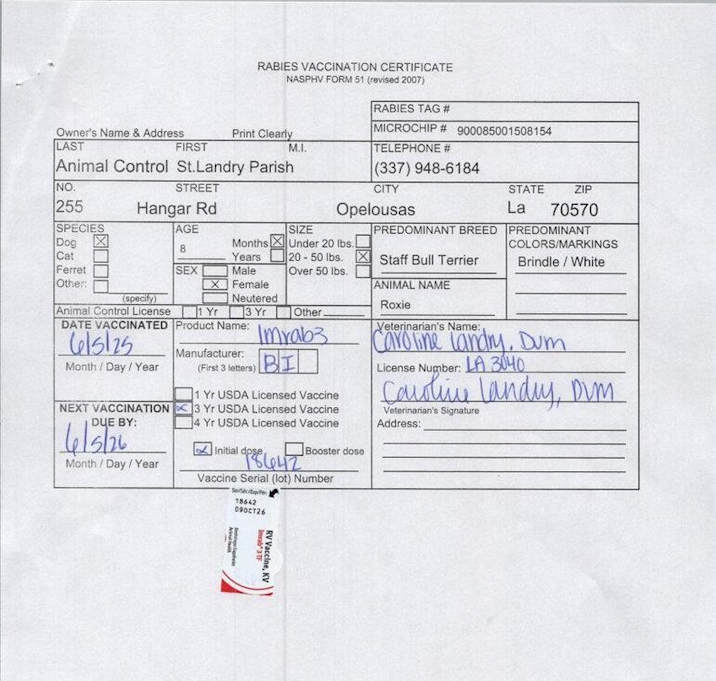 RABIES VACCINATION CERTIFICATE
NASPHV FORM 51 (revised 2007)
RABIES TAG #
Owner's Name & Address Print Clearly
MICROCHIP # 900085001508154
LAST FIRST M.I.
TELEPHONE #
Animal Control St.Landry Parish
(337) 948-6184
NO. STREET CITY STATE ZIP
255 Hangar Rd Opelousas La 70570
SPECIES
Dog X
Cat
Ferret
Other:
(specify)
AGE
8
Months X
Years
SEX Male
X Female
Neutered
SIZE
Under 20 lbs.
20 - 50 lbs. X
Over 50 lbs.
PREDOMINANT BREED
Staff Bull Terrier
ANIMAL NAME
Roxie
PREDOMINANT
COLORS/MARKINGS
Brindle / White
Animal Control License 1 Yr 3 Yr Other
DATE VACCINATED
6/5/25
Month / Day / Year
NEXT VACCINATION
DUE BY:
6/5/26
Month / Day / Year
Product Name: Imrab3
Manufacturer:
(First 3 letters) BI
1 Yr USDA Licensed Vaccine
X 3 Yr USDA Licensed Vaccine
4 Yr USDA Licensed Vaccine
X Initial dose Booster dose
18642
Vaccine Serial (lot) Number
Veterinarian's Name:
Caroline Landry, DVM
License Number: LA 3040
Caroline Landry, DVM
Veterinarian's Signature
Address:
18642
09OCT26
RV Vaccine, KV
Imrab® 3 TF